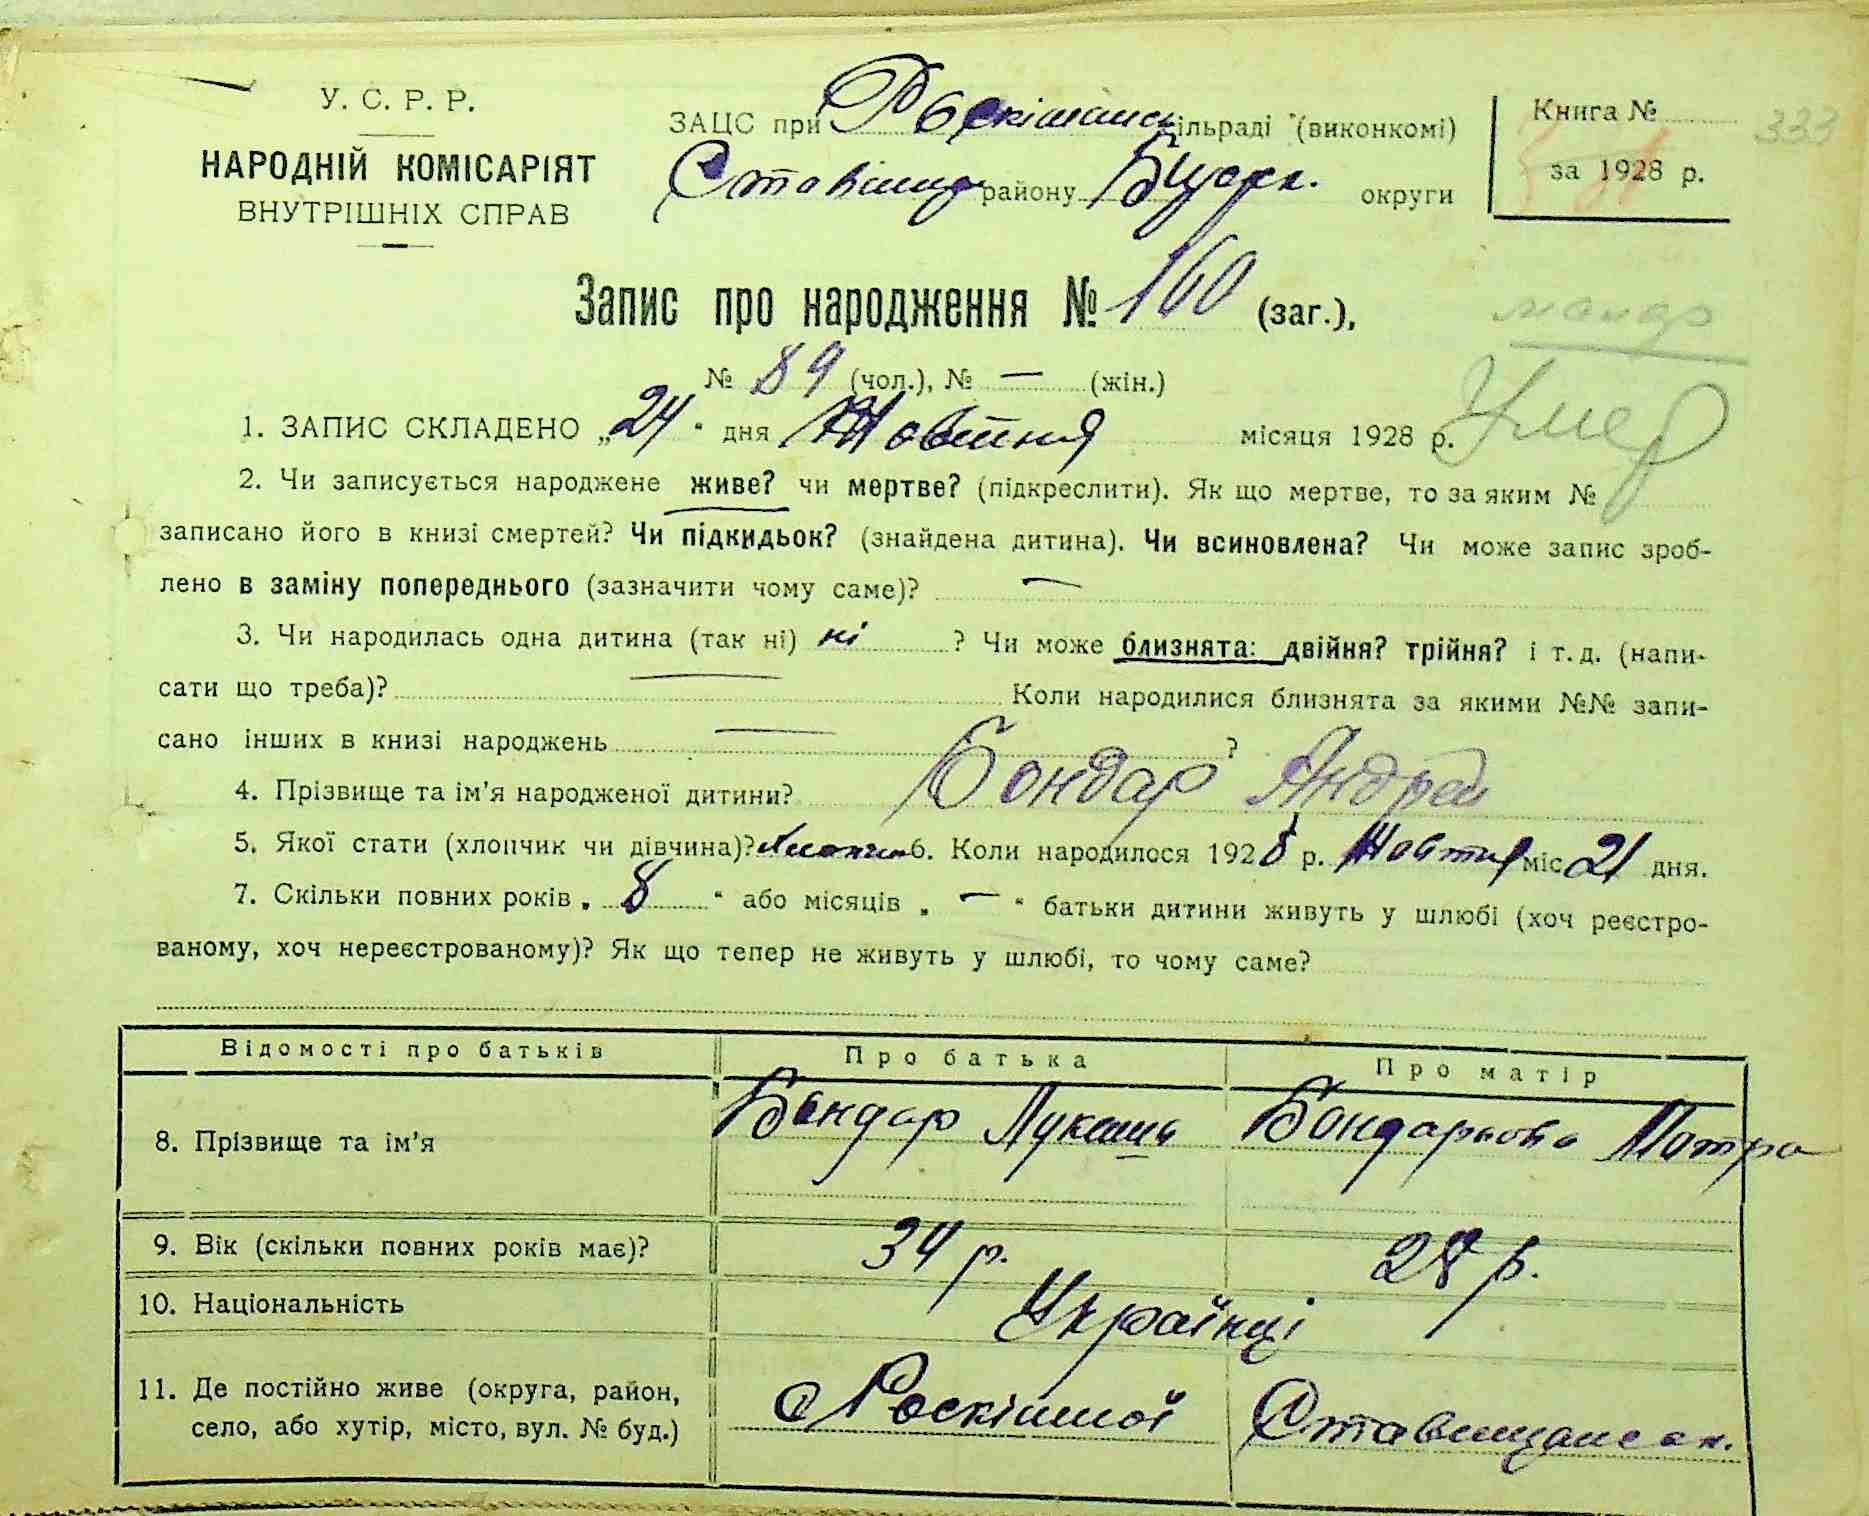 У. С. Р. Р.
НАРОДНІЙ КОМІСАРІЯТ
ВНУТРІШНІХ СПРАВ
ЗАЦС при Роскішанськ сільраді (виконкомі)
Ставищан району БЦерк. округи
Книга №
за 1928 р.
333
Запис про народження № 160 (заг.),
№ 89 (чол.), № — (жін.)
Умер
1. ЗАПИС СКЛАДЕНО „24“ дня Жовтня місяця 1928 р.
2. Чи записується народжене живе? чи мертве? (підкреслити). Як що мертве, то за яким №
записано його в книзі смертей? Чи підкидьок? (знайдена дитина). Чи всиновлена? Чи може запис зроб-
лено в заміну попереднього (зазначити чому саме)? —
3. Чи народилась одна дитина (так ні) ні ? Чи може близнята: двійня? трійня? і т. д. (напи-
сати що треба)? — Коли народилися близнята за якими №№ запи-
сано інших в книзі народжень — ?
4. Прізвище та ім’я народженої дитини? Бондар Андрей
5. Якої стати (хлопчик чи дівчина)? хлопчик 6. Коли народилося 1928 р. Жовтня міс 21 дня.
7. Скільки повних років „ 8 “ або місяців „ — “ батьки дитини живуть у шлюбі (хоч реєстро-
ваному, хоч нереєстрованому)? Як що тепер не живуть у шлюбі, то чому саме?
Відомості про батьків Про батька Про матір
8. Прізвище та ім’я Бондар Лукаш Бондарьова Мотра
9. Вік (скільки повних років має)? 34 р. 28 р.
10. Національність Українці
11. Де постійно живе (округа, район,
село, або хутір, місто, вул. № буд.)
с Роскішної Ставищанськ.